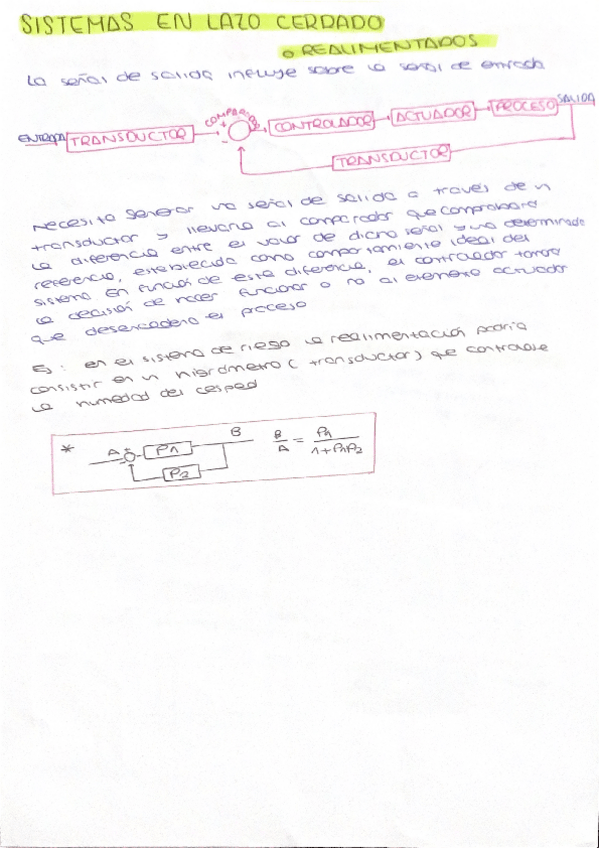 SISTEMAS EN LAZO CERRADO
o REALIMENTADOS
La señal de salida influye sobre la señal de entrada
ENTRADA TRANSDUCTOR COMPARADOR + - CONTROLADOR ACTUADOR PROCESO SALIDA
TRANSDUCTOR
Necesito generar una señal de salida a través de un
transductor y llevarla al comparador que comprobará
la diferencia entre el valor de dicha señal y una determinada
referencia, establecida como comportamiento ideal del
sistema. En función de esta diferencia, el controlador tomará
la decisión de hacer funcionar o no al elemento actuador
que desencadena el proceso
Ej: en el sistema de riego la realimentación podría
consistir en un higrómetro (transductor) que controlase
la humedad del cesped
* A + - P1 B B/A = P1/1+P1P2
P2